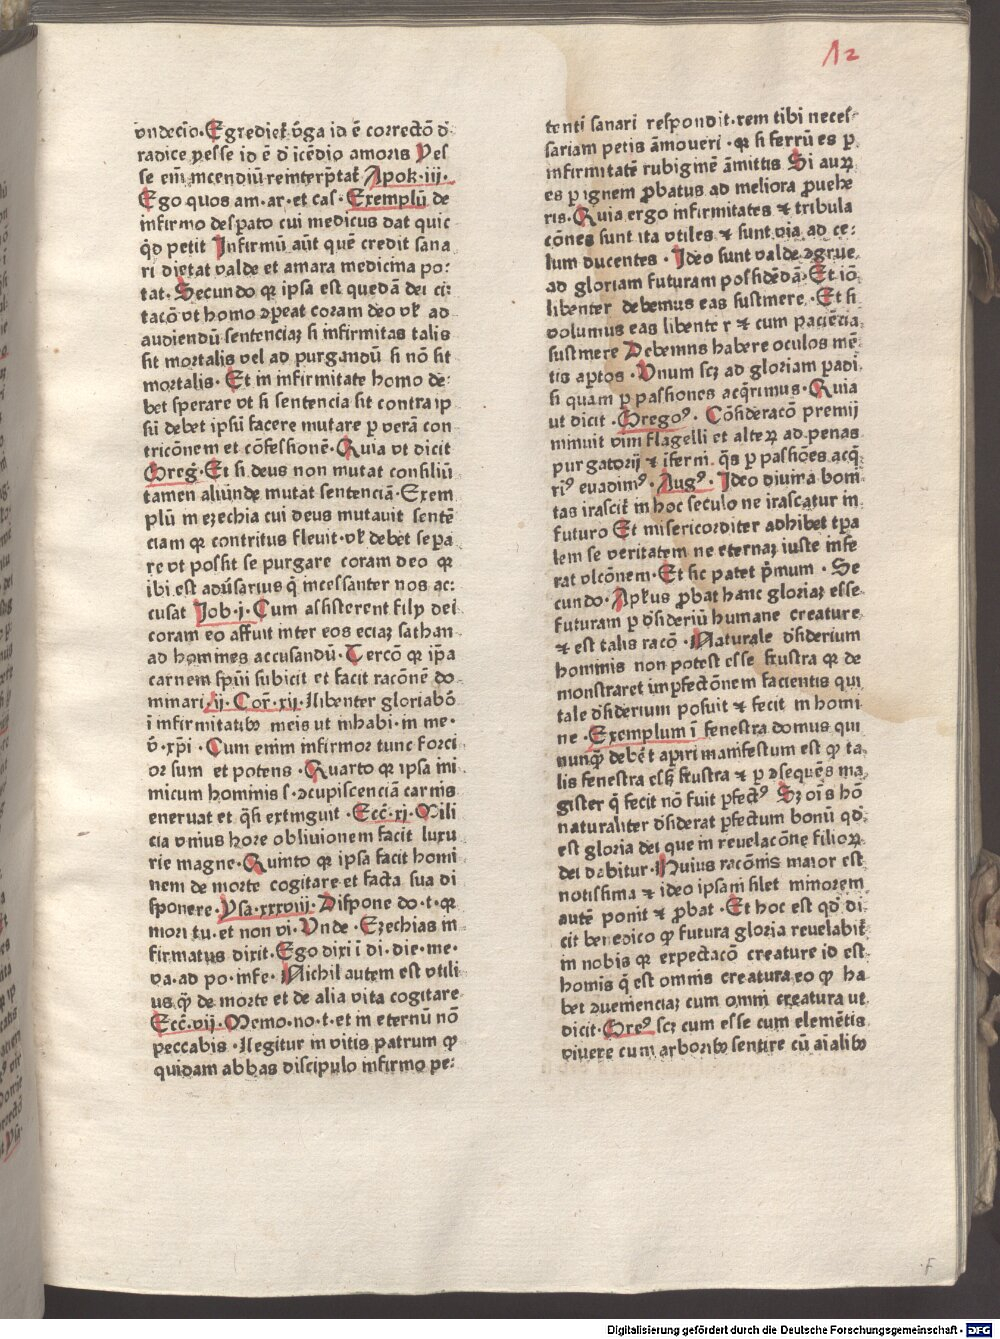 12
vndecīo · Egrediet̄ v̄ga id ē correctō d̄
radice yesse id ē d̄ icēdio amoris Yes
se em̄ incendiū reinterp̄tat̄ Apok · iij ·
Ego quos am · ar · et cas · Exemplū de
infirmo despato cui medicus dat quic
qd̄ petit Infirmū aūt quē credit sana
ri dietat valde et amara medicina po⸗
tat · Secundo qꝛ ipsa est quedā dei ci⸗
tacō vt homo ꝯpeat coram deo vl̄ ad
audiendū sentenciaꝫ si infirmitas talis
sit mortalis vel ad purgandū si nō sit
mortalis · Et in infirmitate homo de⸗
bet sperare vt si sentencia sit contra ip
sū debet ipsū facere mutare ꝑ verā con
tricōnem et cōfessionē · Quia vt dicit
Greḡ · Et si deus non mutat consiliū
tamen aliūnde mutat sentenciā · Exem
plū in ezechia cui deus mutauit sentē
ciam qꝛ contritus fleuit · vl̄ debet se pa
re vt possit se purgare coram deo qꝛ
ibi est adūsarius q̄ incessanter nos ac⸗
cusat Job · j · Cum assisterent filij dei
coram eo affuit inter eos eciaꝫ sathan
ad homines accusandū · Tercō qꝛ ip̄a
carnem sp̄ui subicit et facit racōnē do
minari · ij · Cor̄ · xij · Libenter gloriabō
ī infirmitatibꝫ meis ut inhabi · in me ·
v̄ · xp̄i · Cum enim infirmor tunc forci
or sum et potens · Quarto qꝛ ipsa ini
micum hominis s · ꝯcupiscenciā carnis
eneruat et q̄si extinguit · Ecc̄ · xj · Mili
cia vnius hore obliuionem facit luxu
rie magne · Quinto qꝛ ipsa facit homi
nem de morte cogitare et facta sua di
sponere · Ysa · xxxviij · Dispone do · t · qꝛ
mori tu · et non vi · Vnde · Ezechias in
firmatus dixit · Ego dixi ī di · die · me ·
va · ad po · infe · Nichil autem est vtili
us qꝫ de morte et de alia vita cogitare
Ecc̄ · vij · Memo · no · t · et in eternū nō
peccabis · Legitur in vitis patrum ꝙ
quidam abbas discipulo infirmo pe⸗
tenti sanari respondit · rem tibi neces⸗
sariam petis āmoueri · qꝛ si ferrū es ꝑ
infirmitatē rubiginē āmittis Si auꝝ
es ꝑ ignem ꝓbatus ad meliora ꝓuehe
ris · Quia ergo infirmitates ⁊ tribula
cōnes sunt ita vtiles ⁊ sunt via ad ce⸗
lum ducentes · Ideo sunt valde ꝯgrue
ad gloriam futuram possidēdā · Et iō
libenter debemus eas sustinere · Et si
volumus eas libenter ⁊ cum paciēcia
sustinere Debemus habere oculos mē
tis aꝑtos · Vnum scꝫ ad gloriam ꝑadi
si quam ꝑ passiones acq̄rimus · Quia
ut dicit · Gregoꝰ · Cōsideracō premij
minuit vim flagelli et alteꝝ ad penas
purgatorij ⁊ iferni · q̄s ꝑ passiōes acq̄
riꝰ euadimꝰ · Augꝰ · Ideo diuina boni
tas irascit̄ in hoc seculo ne irascatur in
futuro Et misericorditer adhibet tꝑa
lem se veritatem ne eternaꝫ iuste infe
rat vlcōnem · Et sic patet p̄mum · Se
cundo · Apl̄us ꝓbat hanc gloriaꝫ esse
futuram ꝑ d̄sideriū humane creature
⁊ est talis racō · Naturale d̄siderium
hominis non potest esse frustra qꝛ de
monstraret imꝑfectōnem facientis qui
tale d̄siderium posuit ⁊ fecit in homi
ne · Exemplum ī fenestra domus qui
nunqꝫ debēt apiri manifestum est ꝙ ta
lis fenestra eſſꝫ frustra ⁊ ꝑ ꝯsequēs ma
gister q̄ fecit nō fuit ꝑfectꝰ Sꝫ oīs hō
naturaliter d̄siderat ꝑfectum bonū qd̄
est gloria dei que in reuelacōne filioꝝ
dei dabitur · Huius racōnis maior est
notissima ⁊ ideo ipsam silet minorem
autē ponit ⁊ ꝓbat · Et hoc est qd̄ di
cit benedico ꝙ futura gloria reuelabit̄
in nobis qꝛ expectacō creature id est
homis q̄ est omnis creatura eo ꝙ ha
bet ꝯuenienciaꝫ cum omni creatura ut
dicit · Greꝰ scꝫ cum esse cum elemētis
viuere cum arboribꝫ sentire cū aīalibꝫ
F
Digitalisierung gefördert durch die Deutsche Forschungsgemeinschaft · DFG